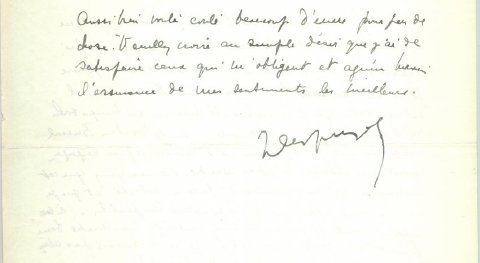 Aussi bien voilà coulé beaucoup d'encre pour peu de
chose. Veuillez croire au simple désir que j'ai de
satisfaire ceux qui m'obligent et agréer
l'assurance de mes sentiments les meilleurs.